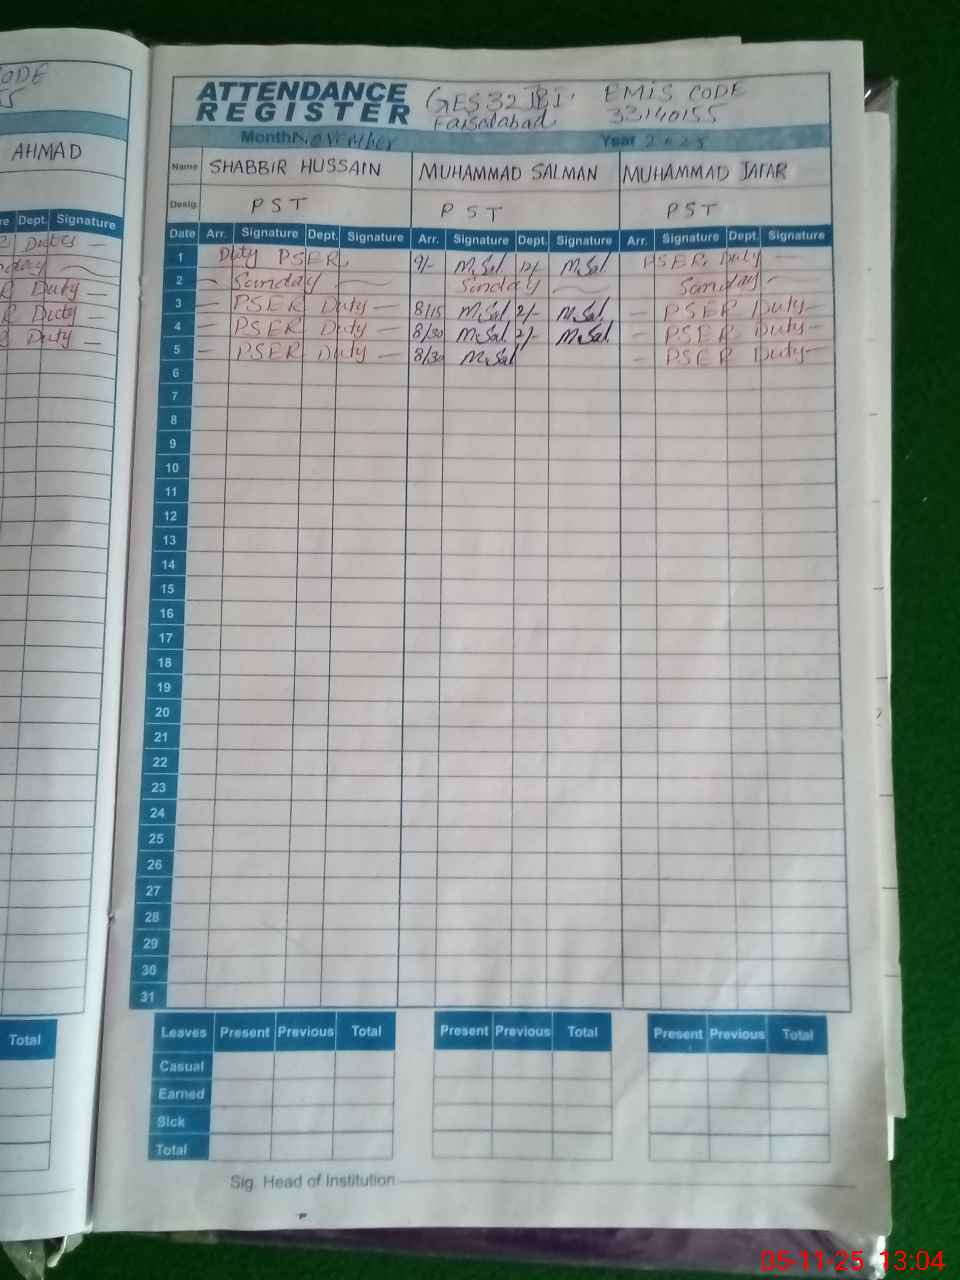 CODE
ATTENDANCE REGISTER
GES 32 JB
Faisalabad
EMIS CODE
33140155
Month November Year 2025
AHMAD
Name SHABBIR HUSSAIN MUHAMMAD SALMAN MUHAMMAD JAFAR
Desig. PST PST PST
Dept. Signature
Date Arr. Signature Dept. Signature Arr. Signature Dept. Signature Arr. Signature Dept. Signature
1 Duty PSER 9/- M.Sal 12/- M.Sal PSER Duty —
2 — Sunday Sunday Sunday
3 — PSER Duty — 8/15 M.Sal 2/- M.Sal — PSER Duty —
4 — PSER Duty — 8/30 M.Sal 2/- M.Sal — PSER Duty —
5 — PSER Duty — 8/30 M.Sal — PSER Duty —
Duty —
Duty —
Duty —
6
7
8
9
10
11
12
13
14
15
16
17
18
19
20
21
22
23
24
25
26
27
28
29
30
31
Total
Leaves Present Previous Total Present Previous Total Present Previous Total
Casual
Earned
Sick
Total
Sig. Head of Institution
05-11-25 13:04